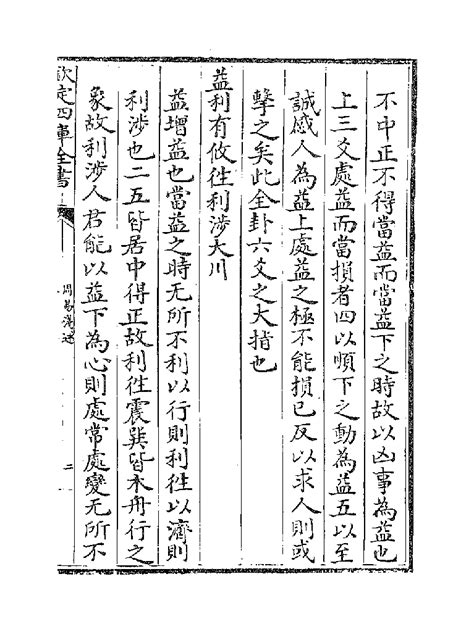 不中正不得當益而當益下之時故以凶事為益也
上三爻處益而當損者四以順下之動為益五以至
誠感人為益上處益之極不能損已反以求人則或
擊之矣此全卦六爻之大㫖也
益利有攸往利涉大川
益增益也當益之時无所不利以行則利往以濟則
利涉也二五皆居中得正故利往震巽皆木舟行之
象故利涉人君能以益下為心則處常處變无所不
欽定四庫全書
周易淺述
二